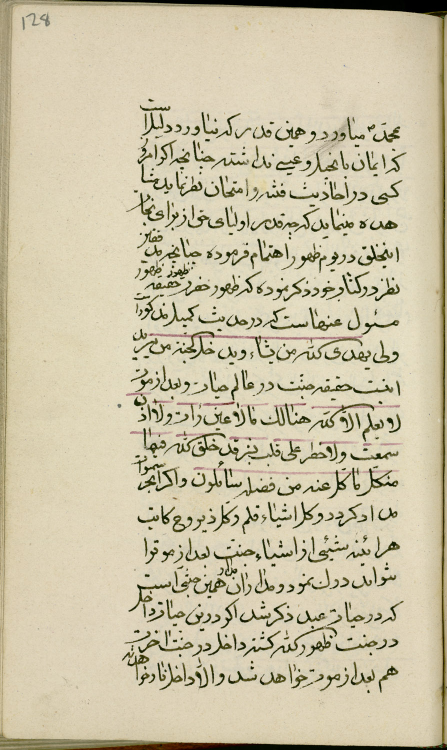 128
محمد ص میاورد و همین قدر که نیاورد دلیل است
که ایمان بانجیل و عیسی نداشته چنانچه اگر امروز
کسی در احادیث فتنه و امتحان نظر نماید مشا
هده مینماید که چه قدر اولیای حق از برای نجات
این خلق در یوم ظهور اهتمام فرموده چنانچه مفضل
نظر در کتاب خود ذکر نموده که ظهور حقیقه
مسئول عنها است که در حدیث کمیل مذکور است
ولی یهدی الله من یشاء و یدخل الجنة من یرید
اینست حقیقه جنت در عالم حیات و بعد از موت
لا یعلم الا الله هنالک ما لا عین رات ولا اذن
سمعت ولا خطر علی قلب بشر قد خلق الله فیها
من کل ما کل عنه من فضله سائلون و اگر ابحر سموات
مداد گردد و کل اشیاء قلم و کل ذیروح کاتب
هر آینه شیئی از اشیاء جنت بعد از موت را
نتواند درک نمود و مدار آن همین جنتی است
که در حیات عبد ذکر شد اگر درین حیات داخل
در جنت ظهور الله گشته داخل در جنت اخرت
هم بعد از موت خواهد شد و الا داخل نار خواهد